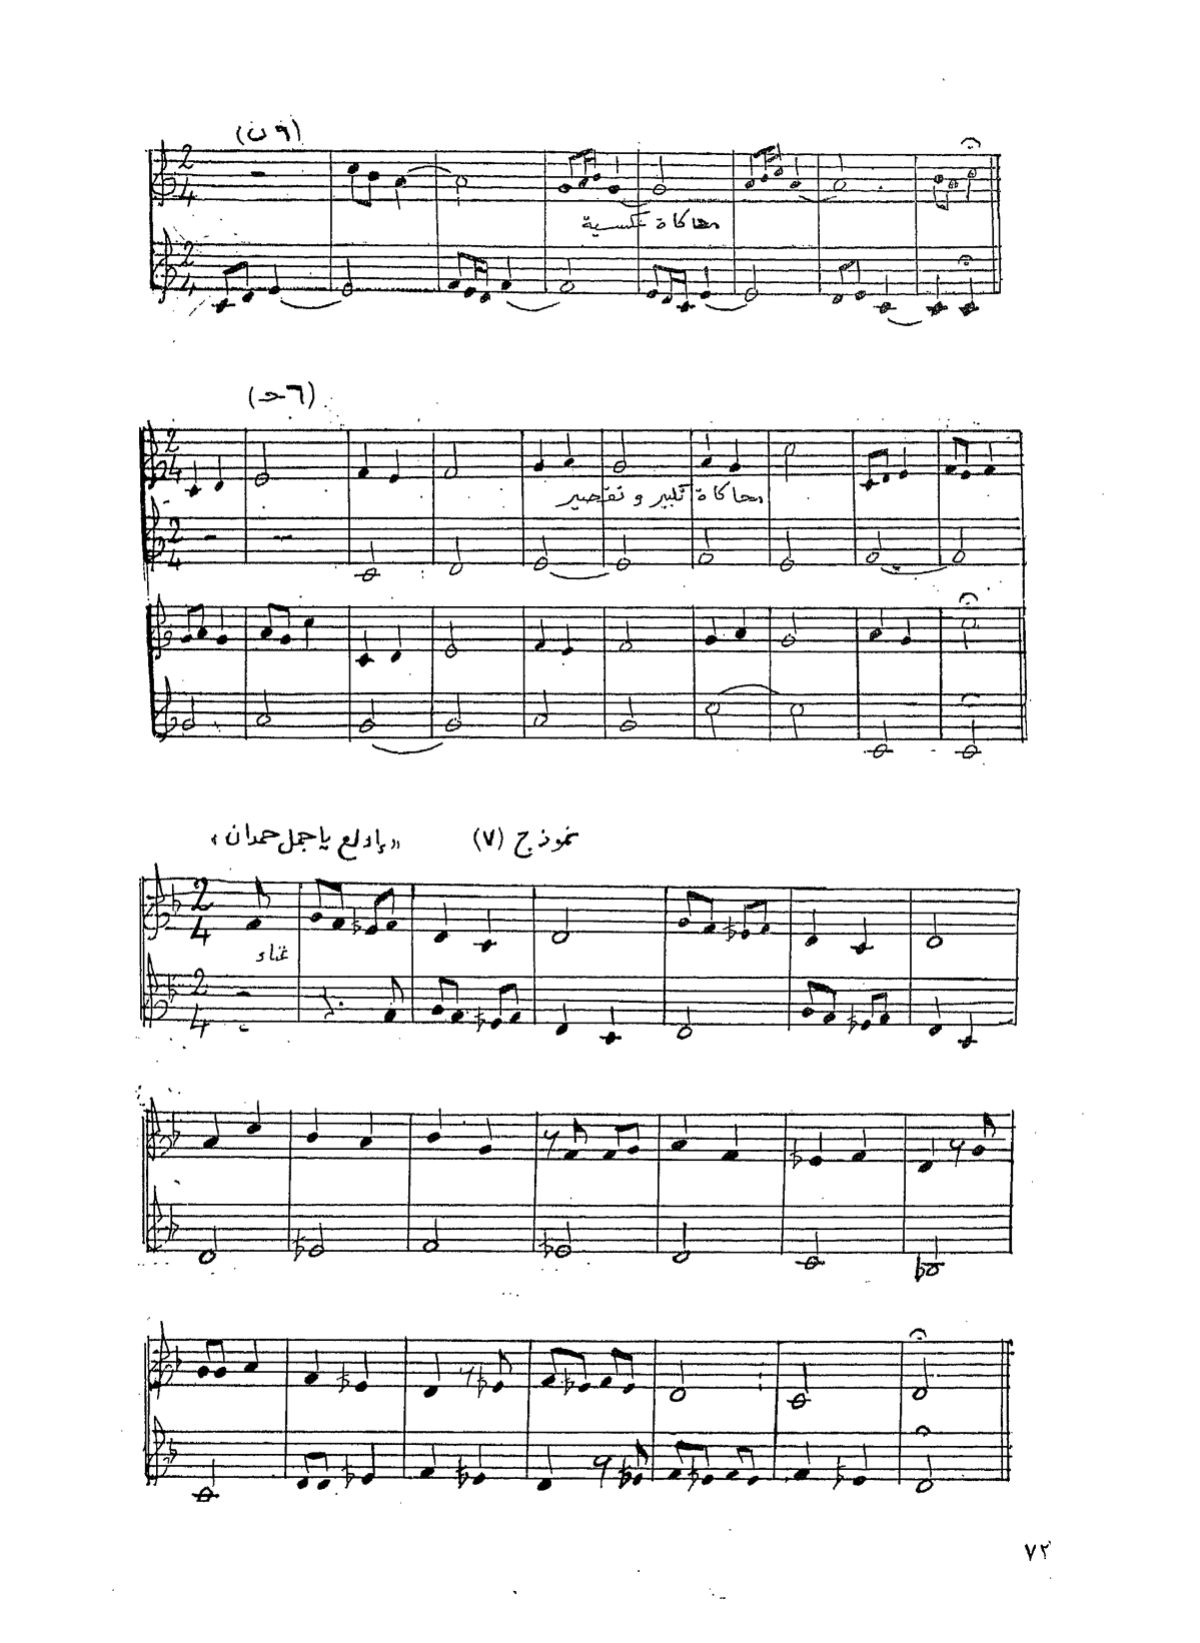 محاكاة عكسية
(٦ حـ)
محاكاة تكبير وتقصير
نموذج (٧) «إدلع يا جمل حمدان»
غناء
٧٢